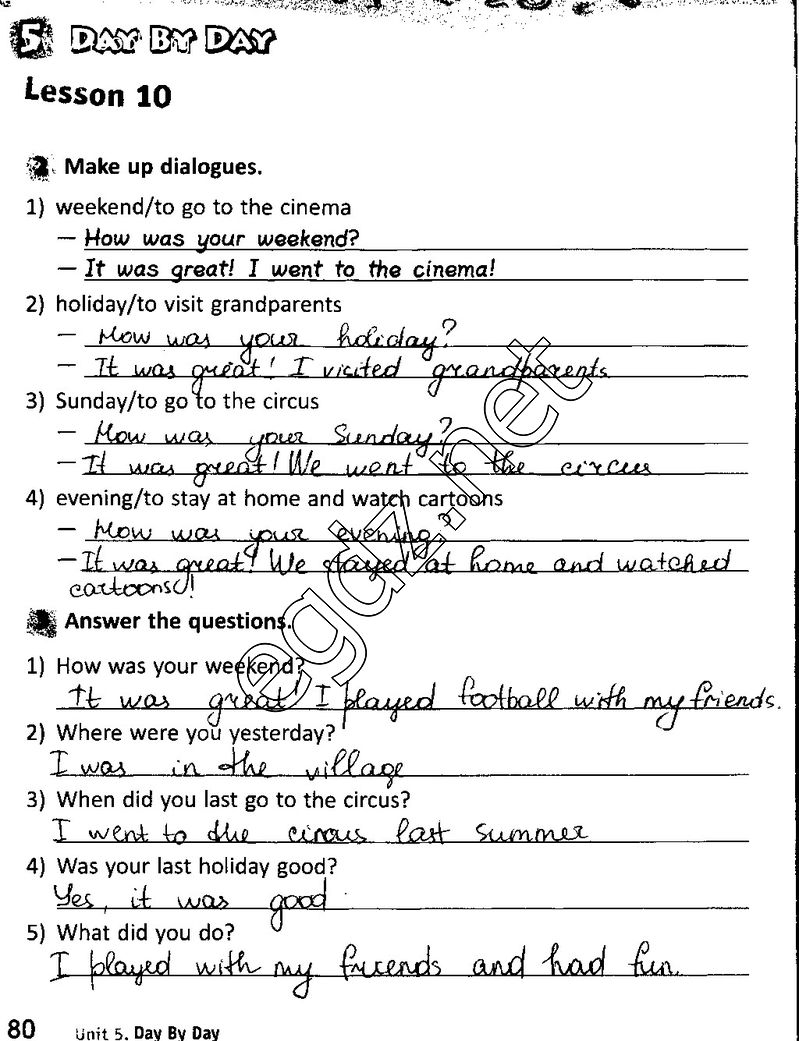 5 DAY BY DAY
Lesson 10
2 Make up dialogues.
1) weekend/to go to the cinema
— How was your weekend?
— It was great! I went to the cinema!
2) holiday/to visit grandparents
— How was your holiday?
— It was great! I visited grandparents
3) Sunday/to go to the circus
— How was your Sunday?
— It was great! We went to the circus
4) evening/to stay at home and watch cartoons
— How was your evening?
— It was great! We stayed at home and watched
cartoons!
3 Answer the questions.
1) How was your weekend?
It was great! I played football with my friends.
2) Where were you yesterday?
I was in the village
3) When did you last go to the circus?
I went to the circus last summer
4) Was your last holiday good?
Yes, it was good
5) What did you do?
I played with my friends and had fun.
80 Unit 5. Day By Day
egdz.net